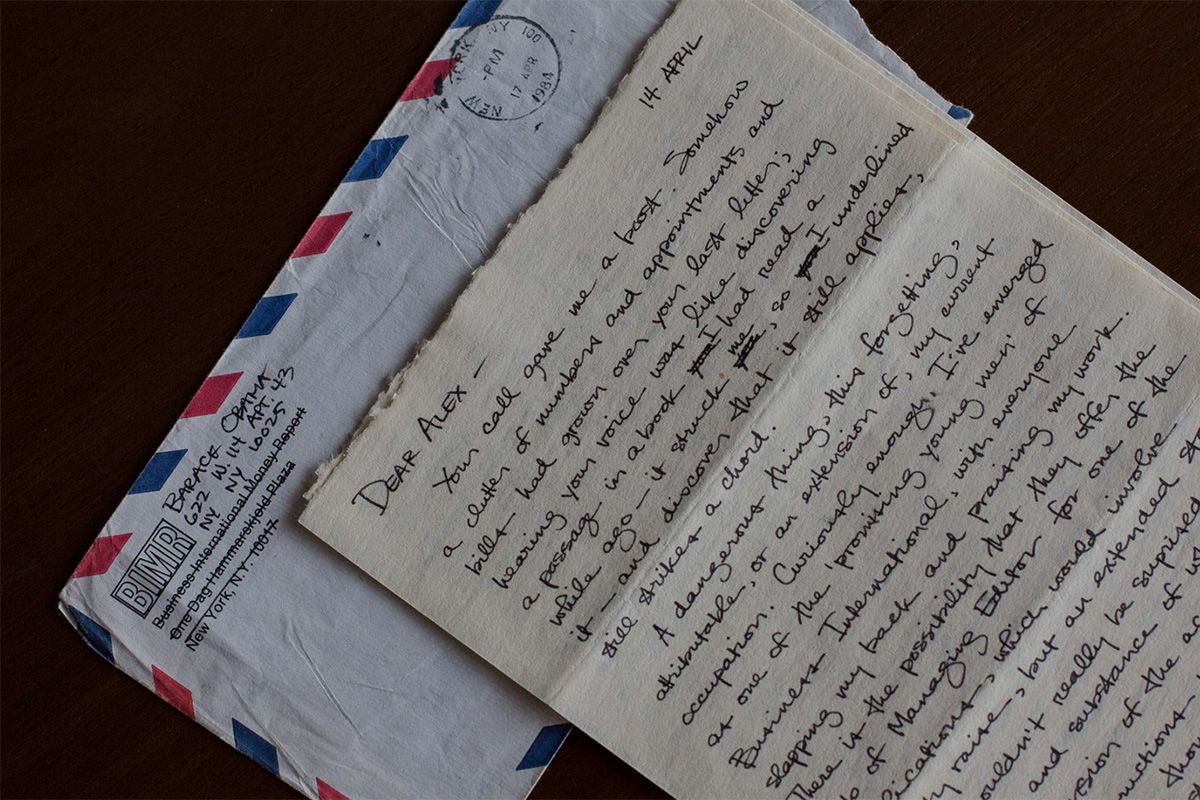 NEW YORK, NY 100
PM
17 APR
1984
BARACK OBAMA
622 W. 114 APT. 43
NY NY 10025
BIMR
Business International Money Report
One Dag Hammarskjold Plaza
New York, N.Y. 10017
14 APRIL
DEAR ALEX —
Your call gave me a boost. Somehow
a clutter of numbers and appointments and
bills had grown over your last letter;
hearing your voice was like discovering
a passage in a book I had read a
while ago — it struck me, so I underlined
it — and discover that it still applies,
still strikes a chord.
A dangerous thing, this forgetting,
attributable, or an extension of, my current
occupation. Curiously enough, I've emerged
as one of the 'promising young men' of
Business International, with everyone
slapping my back and praising my work.
There is the possibility that they offer the
of Managing Editor for one of the
which would involve
raise, but an extended
really be suprised
and substance of
of the